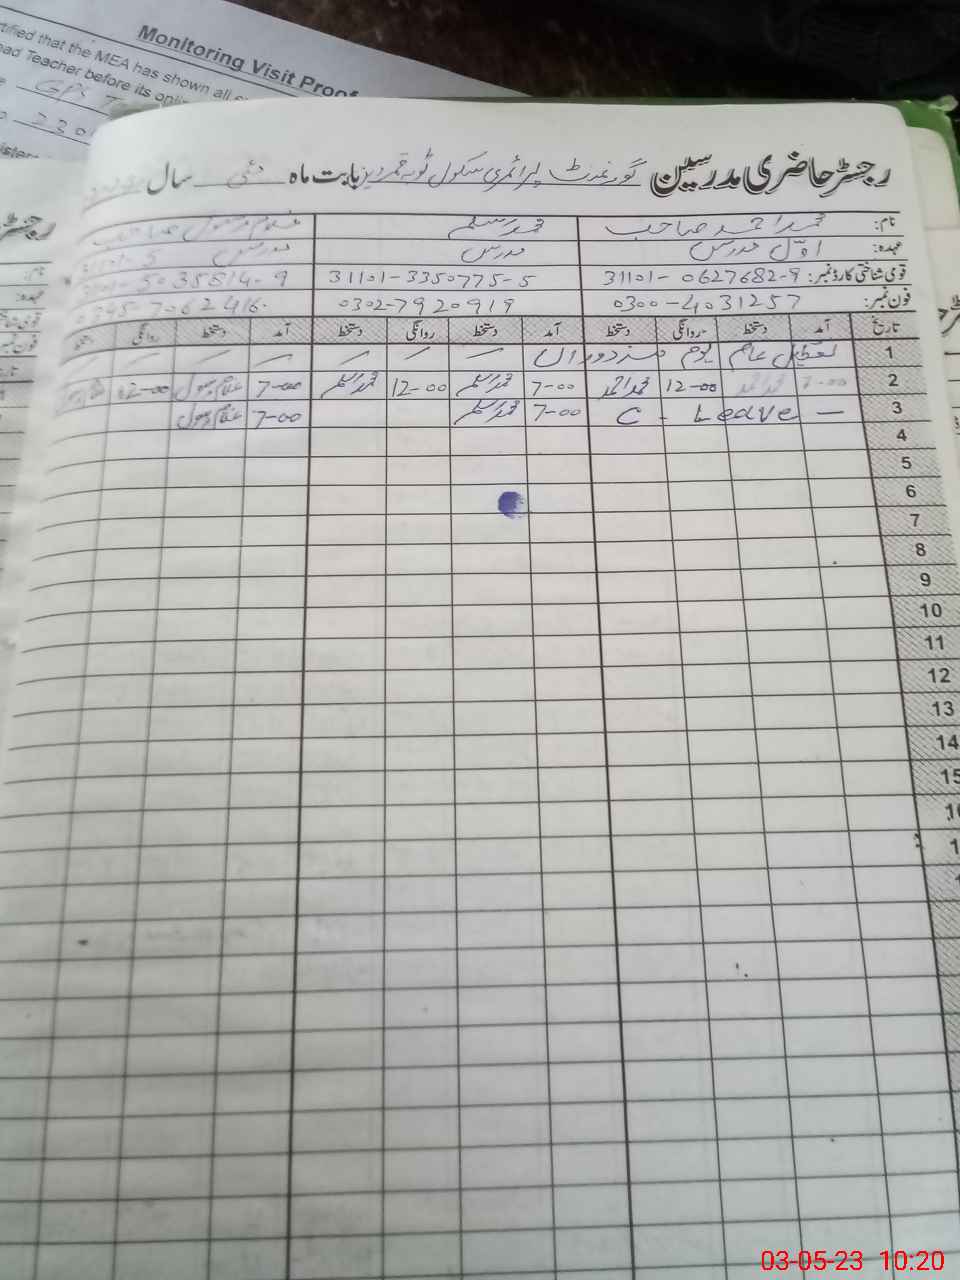 Monitoring Visit Proof
rtified that the MEA has shown all
ead Teacher before its
GPS
رجسٹر حاضری مدرسین گورنمنٹ پرائمری سکول ٹوبہ قمردین بابت ماہ مئی سال
نام: محمد احمد صاحب محمد اسلم غلام رسول صاحب
عہدہ: اوّل مدرس مدرس مدرس
قومی شناختی کارڈ نمبر: 31101-0627682-9 31101-3350775-5 5035514-9
فون نمبر: 0300-4031257 0302-7920919 7062416
تاریخ آمد دستخط روانگی دستخط آمد دستخط روانگی دستخط آمد دستخط روانگی دستخط
1 تعطیل عام یوم مزدوراں — — — — — — —
2 7-00 محمد احمد 12-00 محمد احمد 7-00 محمد اسلم 12-00 محمد اسلم 7-00 غلام رسول 12-00
3 — C. Leave 7-00 محمد اسلم 7-00 غلام رسول
4
5
6
7
8
9
10
11
12
13
14
15
03-05-23 10:20